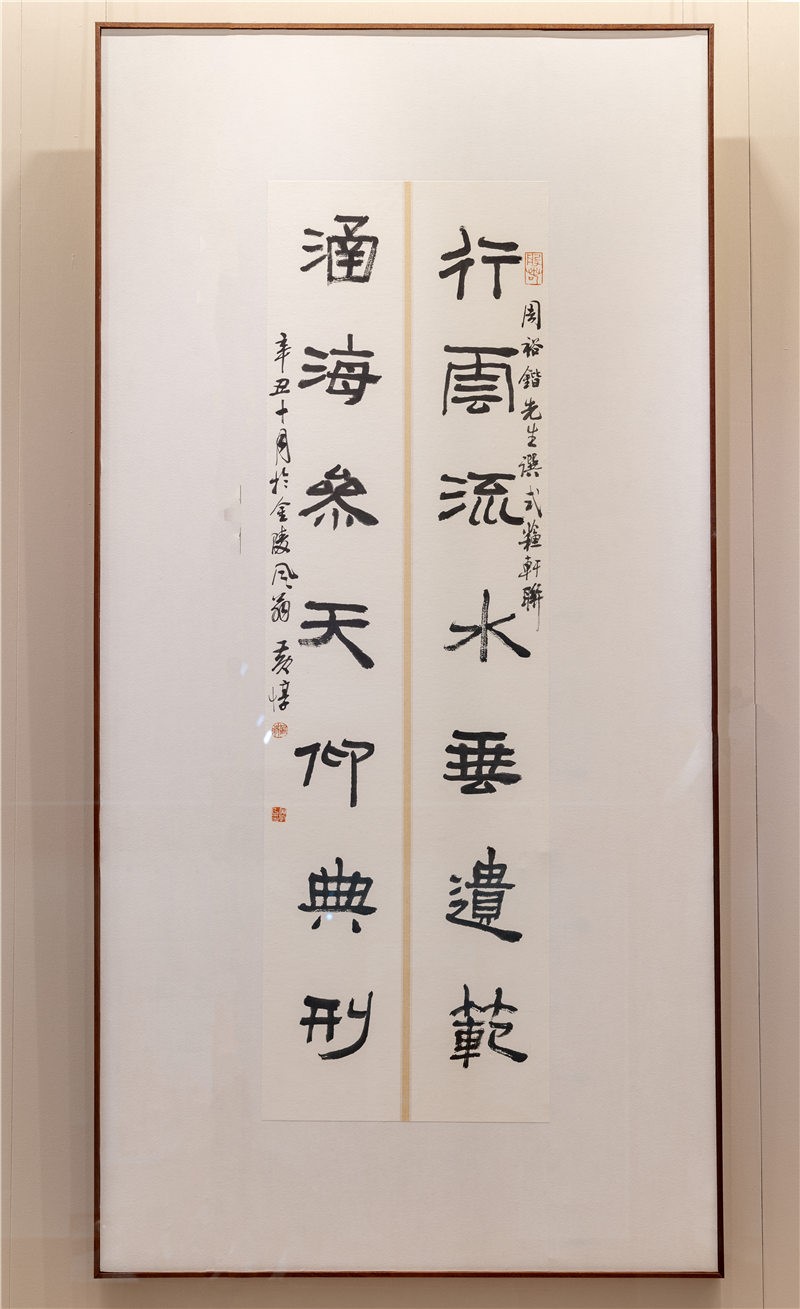 周裕鍇先生譔式蘇軒聯
行雲流水垂遺範
涵海參天仰典刑
辛丑十月於金陵風翁黃惇